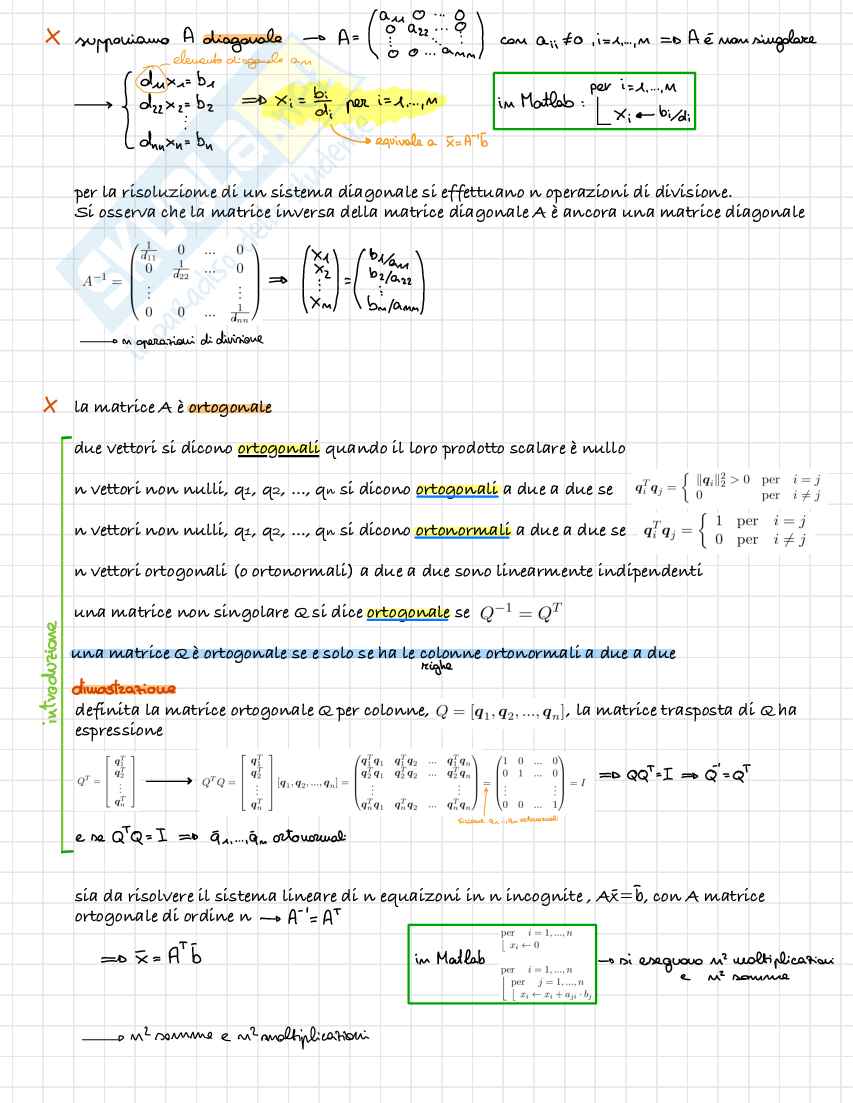 x supponiamo A diagonale → A = ( a₁₁ 0 ... 0 ; 0 a₂₂ ... 0 ; ⋮ ⋱ ⋮ ; 0 0 ... aₙₙ ) con aᵢᵢ ≠ 0, i=1,...,n ⇒ A è non singolare
elemento diagonale a₁₁
→ { d₁₁x₁ = b₁
d₂₂x₂ = b₂ ⇒ xᵢ = bᵢ/dᵢ per i=1,...,n
⋮
dₙₙxₙ = bₙ
→ equivale a x̄ = A⁻¹b̄
in Matlab : per i=1,...,n
xᵢ ← bᵢ/dᵢ
per la risoluzione di un sistema diagonale si effettuano n operazioni di divisione.
Si osserva che la matrice inversa della matrice diagonale A è ancora una matrice diagonale
A⁻¹ = ( 1/d₁₁ 0 ... 0 ; 0 1/d₂₂ ... 0 ; ⋮ ⋮ ; 0 0 ... 1/dₙₙ ) ⇒ ( x₁ ; x₂ ; ⋮ ; xₙ ) = ( b₁/a₁₁ ; b₂/a₂₂ ; ⋮ ; bₙ/aₙₙ )
→ n operazioni di divisione
x la matrice A è ortogonale
introduzione
due vettori si dicono ortogonali quando il loro prodotto scalare è nullo
n vettori non nulli, q1, q2, ..., qn si dicono ortogonali a due a due se qᵢᵀqⱼ = { ‖qᵢ‖₂² > 0 per i = j ; 0 per i ≠ j
n vettori non nulli, q1, q2, ..., qn si dicono ortonormali a due a due se qᵢᵀqⱼ = { 1 per i = j ; 0 per i ≠ j
n vettori ortogonali (o ortonormali) a due a due sono linearmente indipendenti
una matrice non singolare Q si dice ortogonale se Q⁻¹ = Qᵀ
una matrice Q è ortogonale se e solo se ha le colonne ortonormali a due a due
righe
dimostrazione
definita la matrice ortogonale Q per colonne, Q = [q₁, q₂, ..., qₙ], la matrice trasposta di Q ha
espressione
Qᵀ = [ q₁ᵀ ; q₂ᵀ ; ⋮ ; qₙᵀ ] → QᵀQ = [ q₁ᵀ ; q₂ᵀ ; ⋮ ; qₙᵀ ] [q₁, q₂, ..., qₙ] = ( q₁ᵀq₁ q₁ᵀq₂ ... q₁ᵀqₙ ; q₂ᵀq₁ q₂ᵀq₂ ... q₂ᵀqₙ ; ⋮ ⋮ ; qₙᵀq₁ qₙᵀq₂ ... qₙᵀqₙ ) = ( 1 0 ... 0 ; 0 1 ... 0 ; ⋮ ⋮ ; 0 0 ... 1 ) = I ⇒ QQᵀ = I ⇒ Q⁻¹ = Qᵀ
siccome q₁...qₙ ortonormali
e se QᵀQ = I ⇒ q̄₁,...,q̄ₙ ortonormali
sia da risolvere il sistema lineare di n equaizoni in n incognite, Ax̄=b̄, con A matrice
ortogonale di ordine n → A⁻¹ = Aᵀ
⇒ x̄ = Aᵀb̄
in Matlab
per i = 1, ..., n
xᵢ ← 0
per i = 1, ..., n
per j = 1, ..., n
xᵢ ← xᵢ + aⱼᵢ · bⱼ
→ si eseguono n² moltiplicazioni
e n² somme
→ n² somme e n² moltiplicazioni